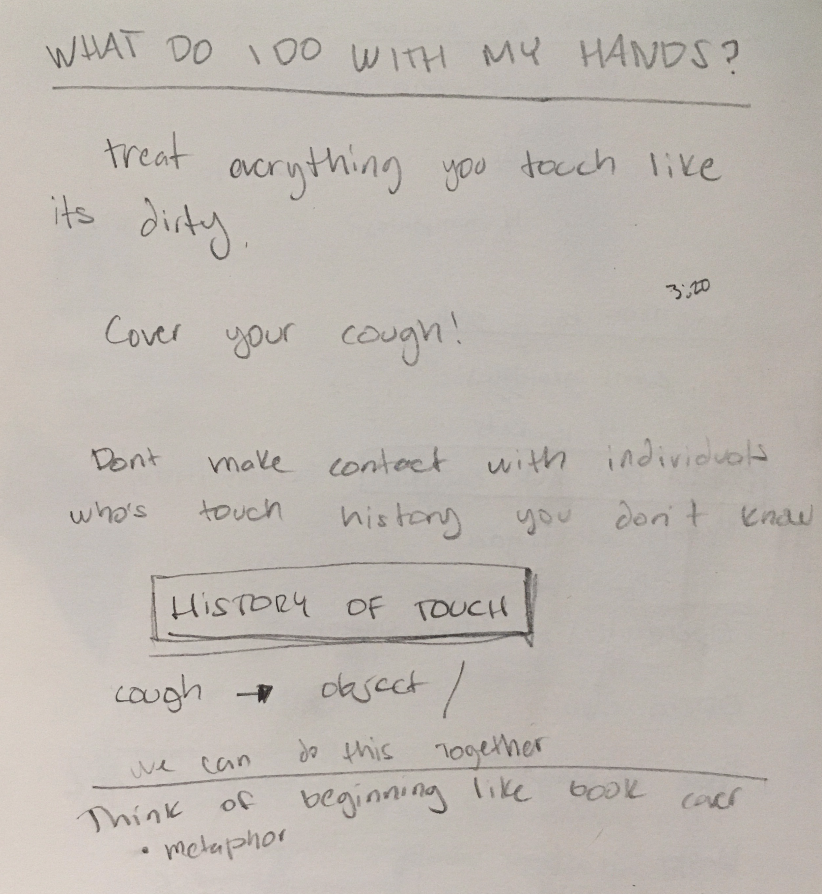 WHAT DO I DO WITH MY HANDS?
treat everything you touch like
its dirty.
3:20
Cover your cough!
Dont make contact with individuals
who's touch history you don't know
HISTORY OF TOUCH
cough → object /
we can do this together
Think of beginning like book cover
• metaphor